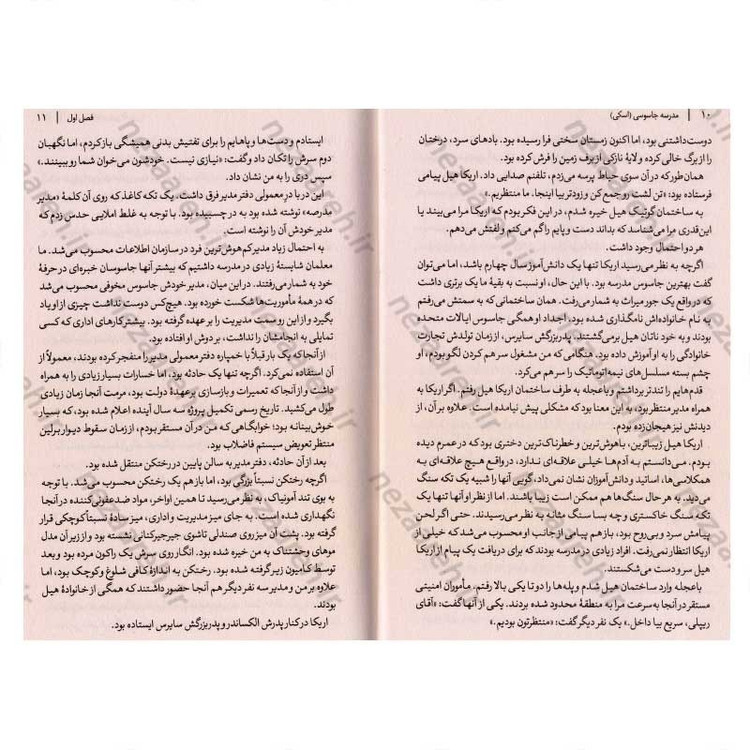 ۱۰ | مدرسه جاسوسی (اسکی)
دوست‌داشتنی بود، اما اکنون زمستان سختی فرا رسیده بود. بادهای سرد، درختان
را از برگ خالی کرده و لایهٔ نازکی از برف زمین را فرش کرده بود.
همان‌طور که در آن سوی حیاط پرسه می‌زدم، تلفنم صدایی داد. اریکا هیل پیامی
فرستاده بود: «تن لشت رو جمع کن و زودتر بیا اینجا. ما منتظریم.»
به ساختمان گرتیک هیل خیره شدم، در این فکر بودم که اریکا مرا می‌بیند یا
این‌قدری مرا می‌شناسد که بداند دست و پایم را گم می‌کنم و لفتش می‌دهم.
هر دو احتمال وجود داشت.
اگرچه به نظر می‌رسید اریکا تنها یک دانش‌آموز سال چهارم باشد، اما می‌توان
گفت بهترین جاسوس مدرسه بود. با این حال، او نسبت به بقیهٔ ما یک برتری داشت
که در واقع یک جور میراث به شمار می‌رفت. همان ساختمانی که به سمتش می‌رفتم
به نام خانواده‌اش نامگذاری شده بود. اجداد او همگی جاسوس ایالات متحده
بودند و به خود ناتان هیل برمی‌گشتند. پدربزرگش سایرس، از زمان تولدش تجارت
خانوادگی را به او آموزش داده بود. هنگامی که من مشغول سر هم کردن لگو بودم، او
چشم بسته مسلسل‌های نیمه اتوماتیک را سر هم می‌کرد.
قدم‌هایم را تندتر برداشتم و باعجله به طرف ساختمان اریکا هیل رفتم. اگر اریکا به
همراه مدیر منتظر بود، به این معنا بود که مشکلی پیش نیامده است. علاوه بر آن، از
دیدنش نیز هیجان‌زده بودم.
اریکا هیل زیباترین، باهوش‌ترین و خطرناک‌ترین دختری بود که در عمرم دیده
بودم. می‌دانستم به آدم‌ها خیلی علاقه‌ای ندارد، در واقع هیچ علاقه‌ای به
همکلاسی‌ها، اساتید و دانش‌آموزان نشان نمی‌داد، گویی آنها را شبیه یک تکه سنگ
می‌دید. به هر حال سنگ‌ها هم ممکن است زیبا باشند. اما از نظر او آنها تنها یک
تکه سنگ خاکستری و چه بسا سنگ مثانه به نظر می‌رسیدند. حتی اگر لحن
پیامش سرد و بی‌روح بود، باز هم پیامی از جانب او محسوب می‌شد که خیلی از
اریکا انتظار نمی‌رفت. افراد زیادی در مدرسه بودند که برای دریافت یک پیام از اریکا
هیل سر و دست می‌شکستند.
باعجله وارد ساختمان هیل شدم و پله‌ها را دو تا یکی بالا رفتم. مأموران امنیتی
مستقر در آنجا به سرعت مرا به منطقهٔ محدود شده بردند. یکی از آنها گفت: «آقای
ریپلی، سریع بیا داخل.» یک نفر دیگر گفت: «منتظرتون بودیم.»
فصل اول | ۱۱
ایستادم و دست‌ها و پاهایم را برای تفتیش بدنی همیشگی باز کردم، اما نگهبان
دوم سرش را تکان داد و گفت: «نیازی نیست. خودشون می‌خوان شما رو ببینند.»
سپس دری را به من نشان داد.
این در با در معمولی دفتر مدیر فرق داشت. یک تکه کاغذ که روی آن کلمهٔ «مدیر
مدرصه» نوشته شده بود به در چسبیده بود. با توجه به غلط املایی حدس زدم که
مدیر خودش آن را نوشته است.
به احتمال زیاد مدیر کم‌هوش‌ترین فرد در سازمان اطلاعات محسوب می‌شد. ما
معلمان شایستهٔ زیادی در مدرسه داشتیم که بیشتر آنها جاسوسان خبره‌ای در حرفهٔ
خود به شمار می‌رفتند. در این میان، مدیر خودش جاسوس مخوفی محسوب می‌شد
که در همهٔ مأموریت‌ها شکست خورده بود. هیچ‌کس دوست نداشت چیزی از او یاد
بگیرد و از این رو سمت مدیریت را بر عهده گرفته بود. بیشتر کارهای اداری که کسی
تمایلی به انجامشان را نداشت، بر دوش او افتاده بود.
از آنجا که یک بار قبلاً با خمپاره دفتر معمولی مدیر را منفجر کرده بودند، معمولاً از
آن استفاده نمی‌کرد. اگرچه تنها یک حادثه بود، اما خسارات بسیار زیادی را به همراه
داشت و از آنجا که تعمیرات و بازسازی بر عهدهٔ دولت بود، مرمت آنجا زمان زیادی
طول می‌کشید. تاریخ رسمی تکمیل پروژه سه سال آینده اعلام شده بود، که بسیار
خوش‌بینانه بود؛ خوابگاهی که من در آن مستقر بودم، از زمان سقوط دیوار برلین
منتظر تعویض سیستم فاضلاب بود.
بعد از آن حادثه، دفتر مدیر به سالن پایین در رختکن منتقل شده بود.
اگرچه رختکن نسبتاً بزرگی بود، اما باز هم یک رختکن محسوب می‌شد. با توجه
به بوی تند آمونیاک، به نظر می‌رسید تا همین اواخر، مواد ضدعفونی‌کننده در آنجا
نگهداری شده است. به جای میز مدیریت و اداری، میز سادهٔ نسبتاً کوچکی قرار
گرفته بود. پشت آن میز روی صندلی تاشوی جیرجیرکنانی نشسته بود و از زیر آن مدل
موهای وحشتناک به من خیره شده بود. انگار روی سرش یک راکون مرده بود و بعد
توسط کامیون زیر گرفته شده بود. رختکن به اندازهٔ کافی شلوغ و کوچک بود، اما
علاوه بر من و مدیر سه نفر دیگر هم آنجا حضور داشتند که همگی از خانوادهٔ هیل
بودند.
اریکا در کنار پدرش الکساندر و پدربزرگش سایرس ایستاده بود.
nezaareh.ir